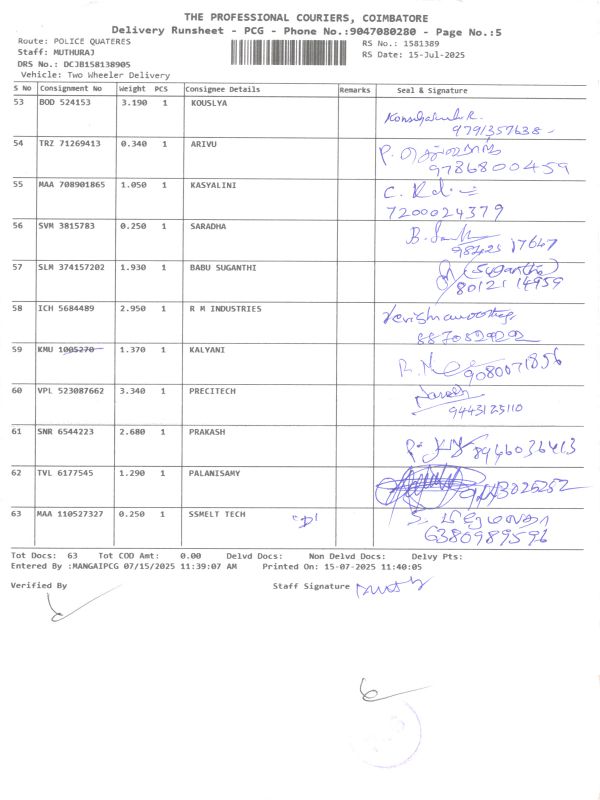 THE PROFESSIONAL COURIERS, COIMBATORE
Delivery Runsheet - PCG - Phone No.:9047080280 - Page No.:5
Route: POLICE QUATERES
RS No.: 1581389
Staff: MUTHURAJ
RS Date: 15-Jul-2025
DRS No.: DCJB158138905
Vehicle: Two Wheeler Delivery
S No Consignment No Weight PCS Consignee Details Remarks Seal & Signature
53 BOD 524153 3.190 1 KOUSLYA
9791357638
54 TRZ 71269413 0.340 1 ARIVU
9786800459
55 MAA 708901865 1.050 1 KASYALINI
7200024379
56 SVM 3815783 0.250 1 SARADHA
57 SLM 374157202 1.930 1 BABU SUGANTHI
(Sugantha)
80121 14959
58 ICH 5684489 2.950 1 R M INDUSTRIES
59 KMU 1005270 1.370 1 KALYANI
9080071856
60 VPL 523087662 3.340 1 PRECITECH
9443125110
61 SNR 6544223 2.680 1 PRAKASH
8946036413
62 TVL 6177545 1.290 1 PALANISAMY
63 MAA 110527327 0.250 1 SSMELT TECH
6380989596
Tot Docs: 63 Tot COD Amt: 0.00 Delvd Docs: Non Delvd Docs: Delvy Pts:
Entered By :MANGAIPCG 07/15/2025 11:39:07 AM Printed On: 15-07-2025 11:40:05
Verified By Staff Signature